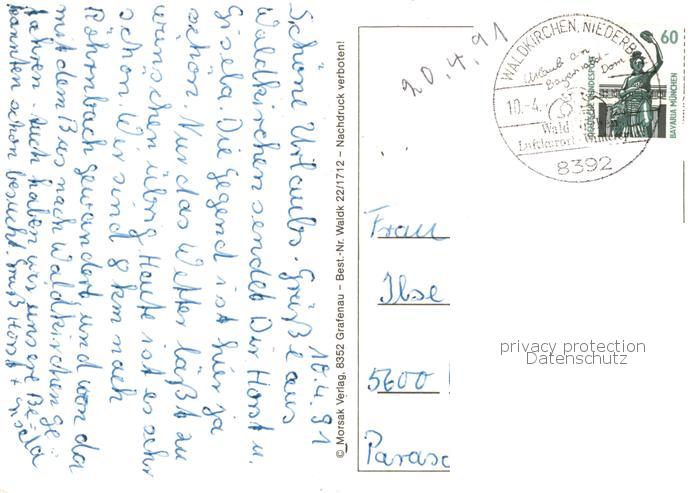 10.4.91
Schöne Urlaubs-Grüße aus
Waldkirchen sendet Dir Horst u.
Gisela. Die Gegend ist hier ja
schön. Nur das Wetter läßt zu
wünschen übrig. Heute ist es sehr
schön. Wir sind 8 km nach
Röhrnbach gewandert und von da
mit dem Bus nach Waldkirchen ge-
fahren. Auch haben wir unsere Be-
kannten schon besucht. Gruß Horst + Gisela
© Morsak Verlag, 8352 Grafenau – Best.-Nr. Waldk 22/1712 – Nachdruck verboten!
20.4.91
WALDKIRCHEN, NIEDERB
Urlaub am
Bayerwald-
Dom
10.-4.
Wald
Luftkurort
8392
60
DEUTSCHE BUNDESPOST
BAVARIA MÜNCHEN
Frau
Ilse
5600
Parasc
privacy protection
Datenschutz